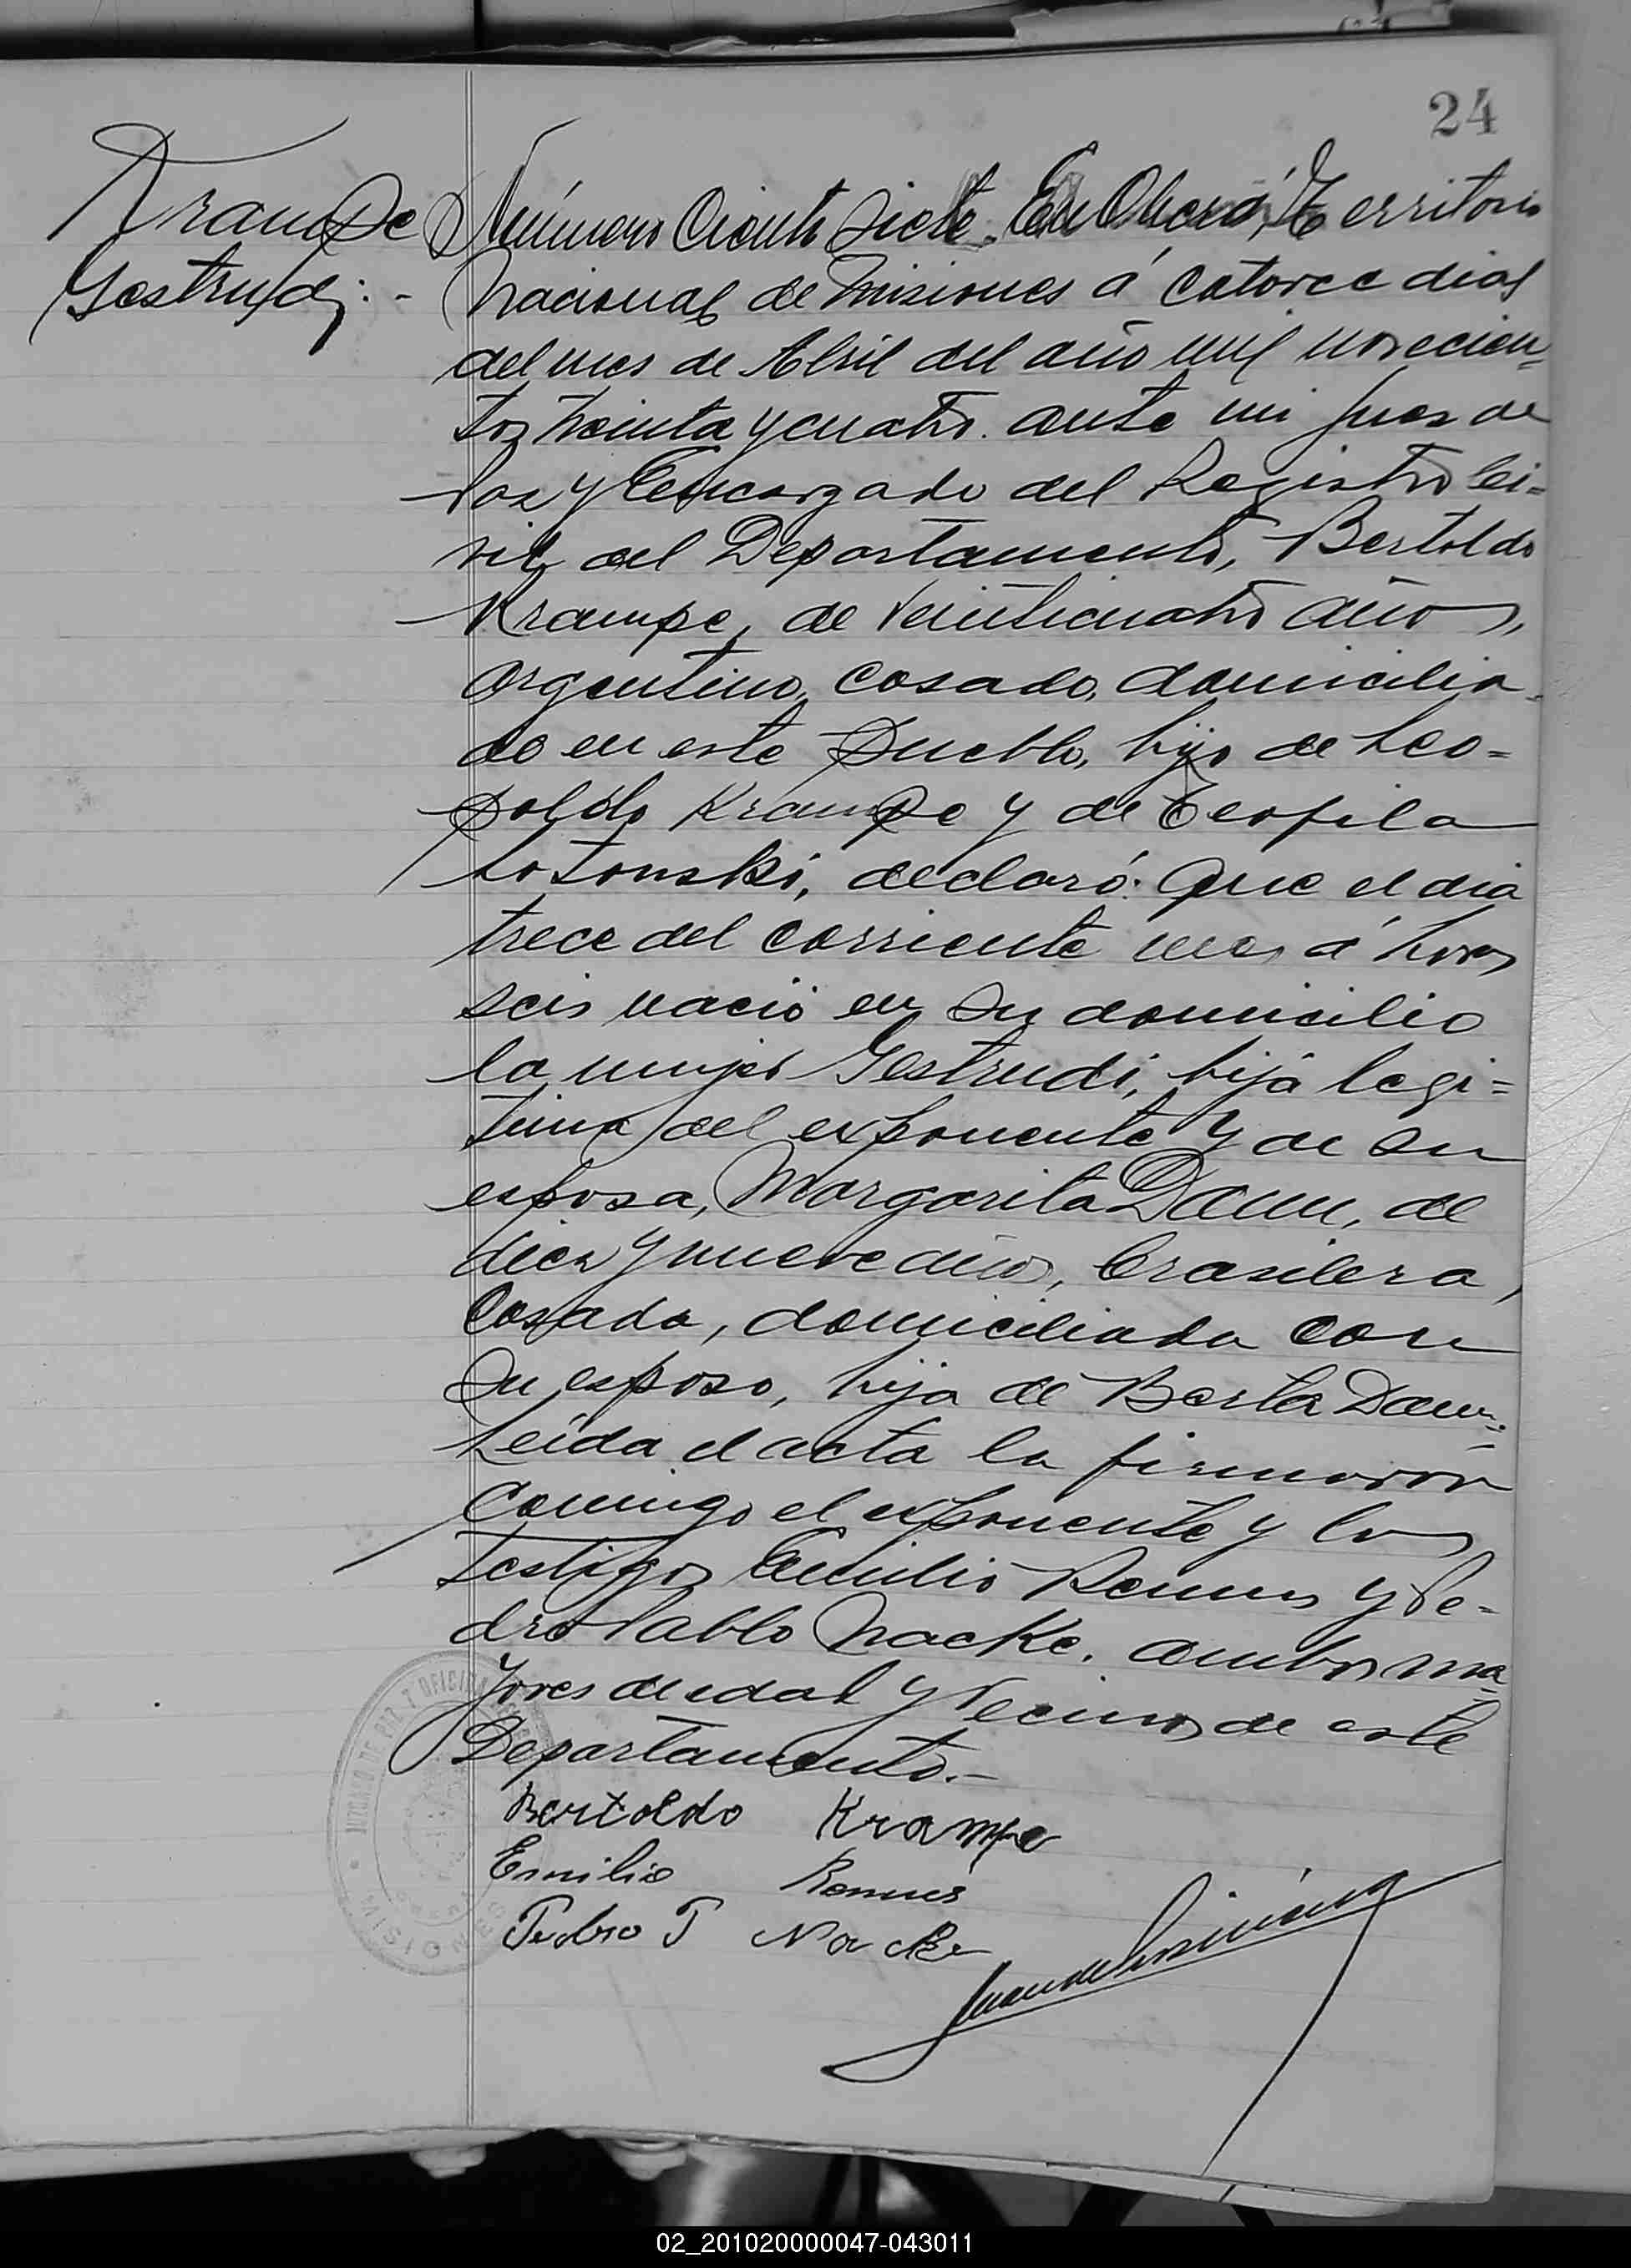 24
Krampe
Gertrudi.-
Número Ciento Siete. En Oberá, Territorio
Nacional de Misiones á catorce dias
del mes de Abril del año mil novecien=
tos treinta y cuatro. ante mi Juez de
Paz y Encargado del Registro Ci=
vil del Departamento, Bertoldo
Krampe, de veinticuatro años,
argentino, casado, domicilia=
do en este pueblo, hijo de Leo=
poldo Krampe y de Teofila
declaró: Que el dia
trece del corriente mes á horas
seis nació en su domicilio
la mujer Gertrudi, hija legi=
tima del exponente y de su
esposa, Margarita Daum, de
diez y nueve años, brasilera,
casada, domiciliada con
su esposo, hija de Berta Daum.=
Leida el acta la firmaron
comigo el exponente y los
testigos Emilio Remus y Pe=
dro Pablo Nacke, ambos ma=
yores de edad y vecinos de este
Departamento.-
Bertoldo Krampe
Emilio Remus
Pedro P Nacke
JUZGADO DE PAZ Y OFICINA
MISIONES
02_201020000047-043011